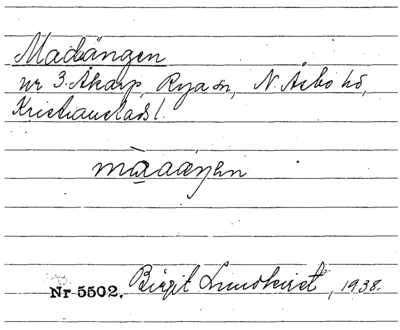 Madängen
nr 3. Åkarp, Rya sn, N. Åsbo hd,
Kristianstads l.
Nr 5502. Birgit Lundkvist, 1938.